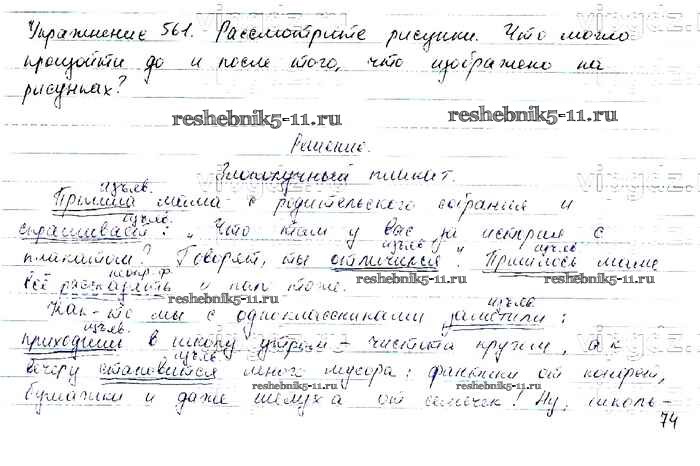 Упражнение 561. Рассмотрите рисунки. Что могло
произойти до и после того, что изображено на
рисунках?
reshebnik5-11.ru reshebnik5-11.ru
Решение.
Злополучный плакат.
изъяв.
Пришла мама с родительского собрания и
изъяв.
спрашивает: „Что там у вас за история с
изъяв. изъяв.
плакатом? Говорят, ты отличился". Пришлось маме
неопр. ф.
всё рассказать и папе тоже.
reshebnik5-11.ru reshebnik5-11.ru
изъяв.
Как-то мы с одноклассниками заметили:
изъяв.
приходишь в школу утром – чистота кругом, а к
изъяв.
вечеру становится много мусора: фантики от конфет,
reshebnik5-11.ru reshebnik5-11.ru
бумажки и даже шелуха от семечек! Ну, школь-
74